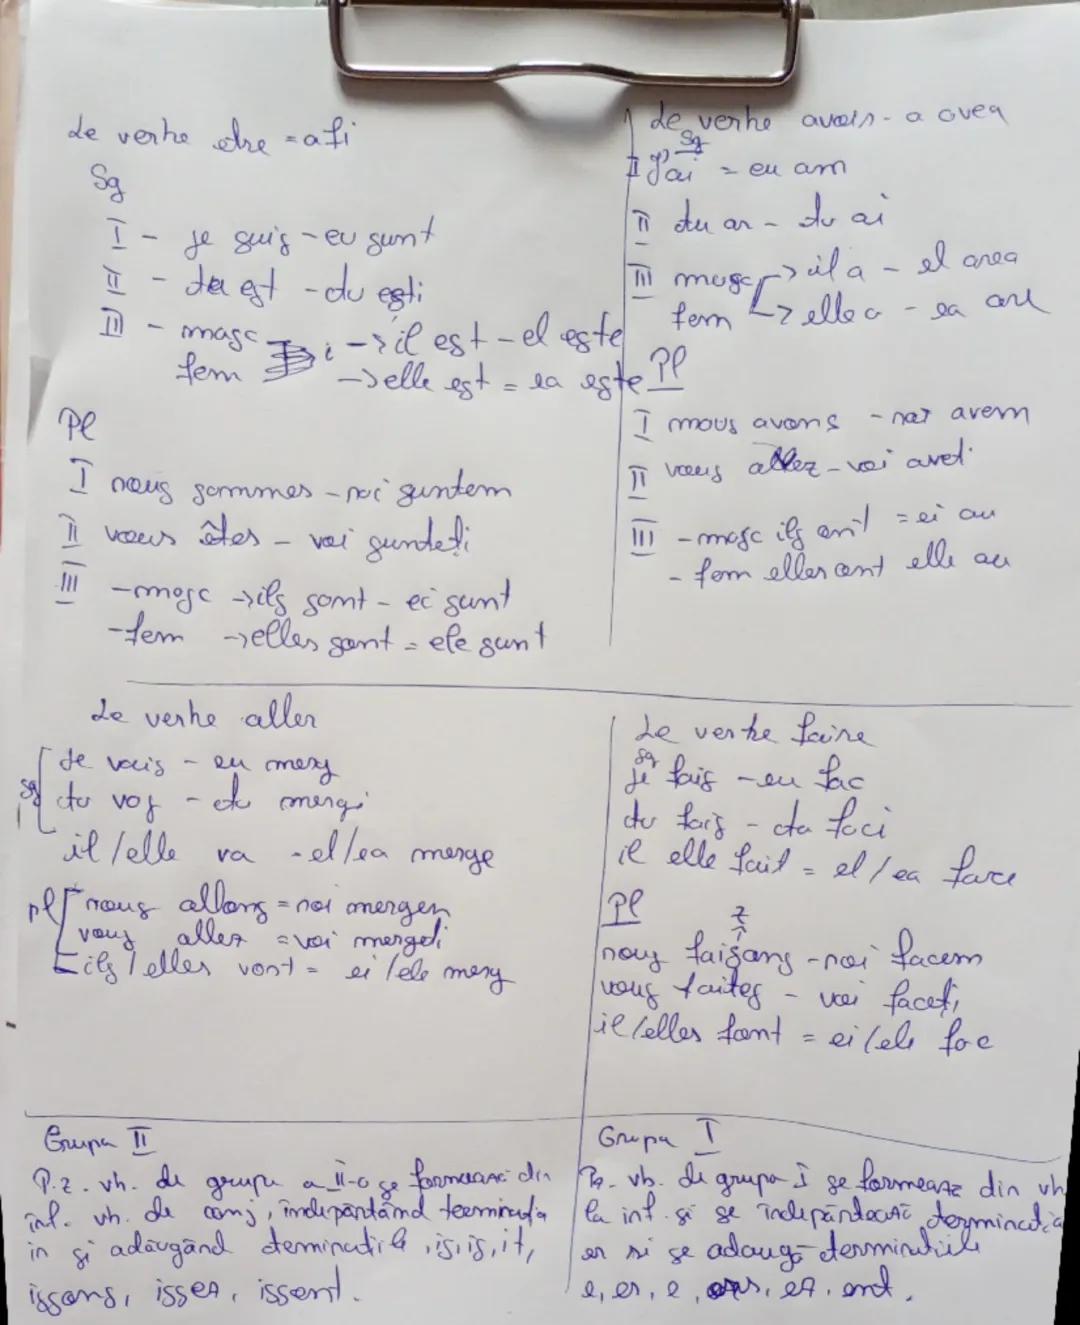 Le verbe etre = a fi
Sg
I - je suis - eu sunt
II - tu est - tu ești
III - masc → il est - el este
fem → elle est = ea este
Pl
I nous sommes - noi suntem
II vous êtes - voi sunteți
III - masc → ils sont - ei sunt
- fem → elles sont = ele sunt
Le verbe avoir - a avea
Sg
I J'ai = eu am
II tu as - tu ai
III masc → il a - el area
fem → elle a - ea are
Pl
I nous avons - noi avem
II vous allez - voi aveti
III - masc ils ont = ei au
- fem elles ont elle au
Le verbe aller
Sg Je vais - eu merg
tu vas - tu mergi
il / elle va - el / ea merge
pl nous allons = noi mergem
vous allez = voi mergeți
ils / elles vont = ei / ele merg
Le verbe faire
Sg
je fais - eu fac
tu fais - tu faci
il elle fait = el / ea face
Pl
z
nous faisons - noi facem
vous faites - voi faceți
il / elles font = ei / ele fac
Grupa II
P.z. vb. de grupa a II-a se formează din
inf. vb. de conj, îndepărtând terminația
in și adăugând terminațiile, is, is, it,
issons, issez, issent.
Grupa I
vb. de grupa I se formează din vb
la inf. și se îndepărtează terminația
er și se adaugă terminațiile
e, es, e, ons, ez, ent.